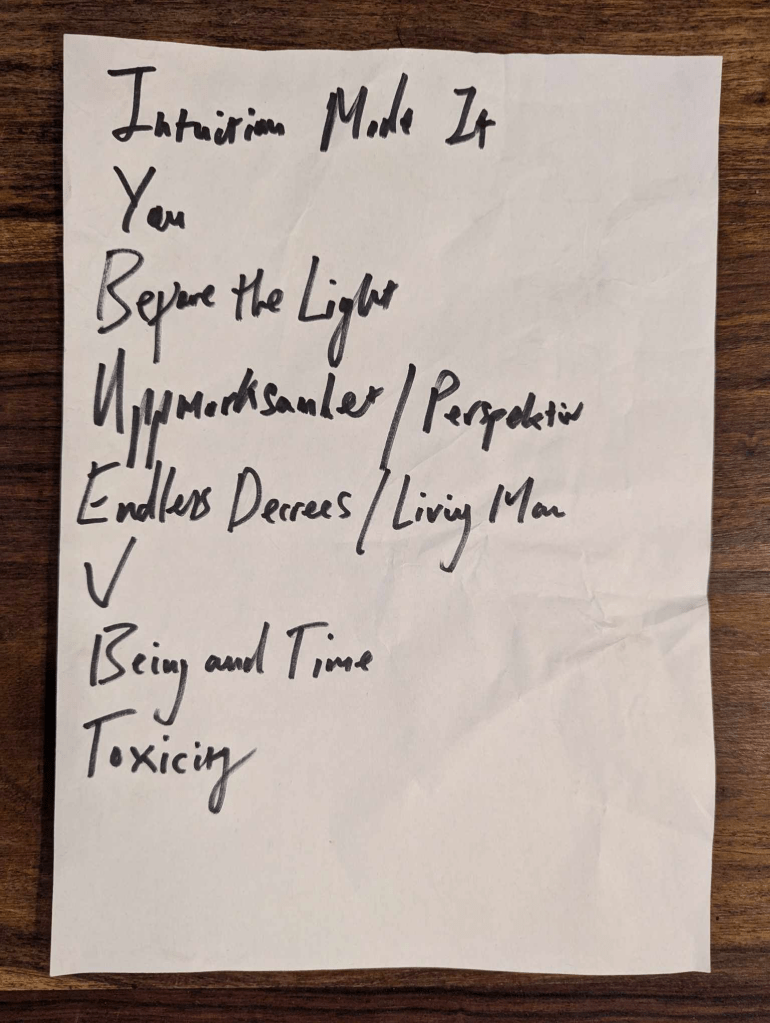 Intuition Made It
You
Before the Light
Uppmärksamhet / Perspektiv
Endless Decrees / Living Man
V
Being and Time
Toxicity